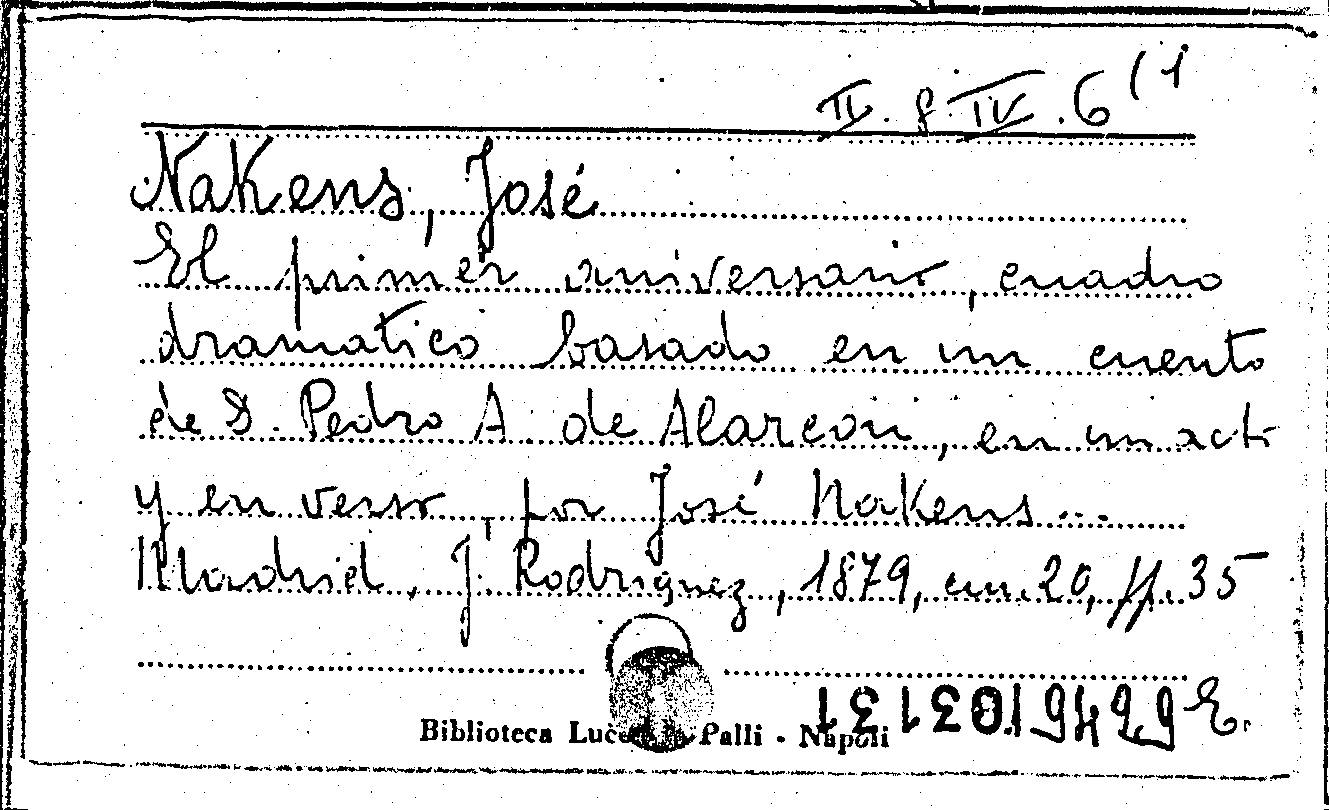 IV. 8. IV. 6 (1
Nakens, José
El primer aniversario, cuadro
dramatico basado en un cuento
de D. Pedro A. de Alarcon, en un acto
y en verso, por José Nakens...
Madrid, J. Rodriguez, 1879, cm. 20, pp. 35
E.
Biblioteca Lucchesi Palli - Napoli